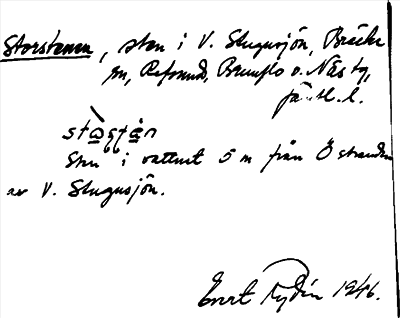 Storstenen, sten i V. Stugusjön, Bräcke
sn, Refsund, Brunflo o. Näs tg,
jämtl. l.
Sten i vattnet 5 m från Ö stranden
av V. Stugusjön.
Evert Rydén 1946.